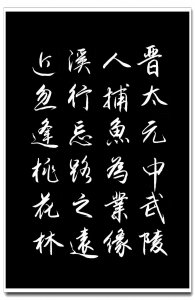 晋太元中武陵
人捕魚為業緣
溪行忘路之遠
近忽逢桃花林